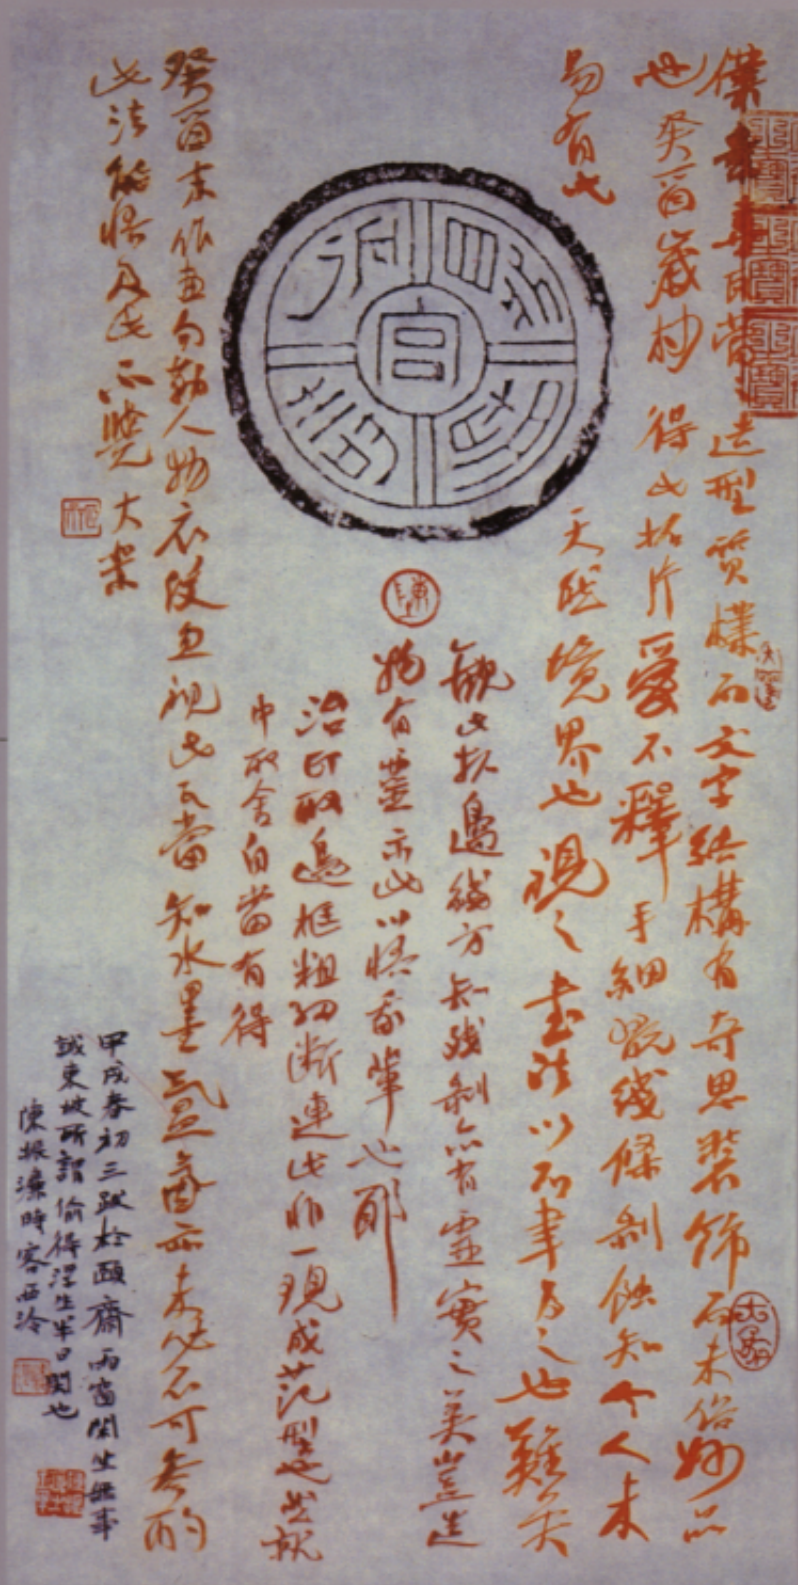 僕素喜瓦當之造型質樸而文字結構有奇思裝飾而未俗妙品
也癸酉歲杪得此拓片愛不釋手細觀線條剝蝕知今人未
易有此
天然境界也視之書法以不筆為之也難矣
觀此拓邊線方知殘剝亦有虛實之美豈造
物有靈示此以悟我輩也耶
治印取邊框粗細斷連此非一現成範型也然就
中取舍自當有得
癸酉末作畫勾勒人物衣紋畫視此瓦當知水墨氤氳亦未必不可參酌
此法能悟及此亦覺大樂
甲戌春初三跋於頤齋雨窗閑坐無事
誠東坡所謂偷得浮生半日閑也
陳振濂時客西泠
官
陳